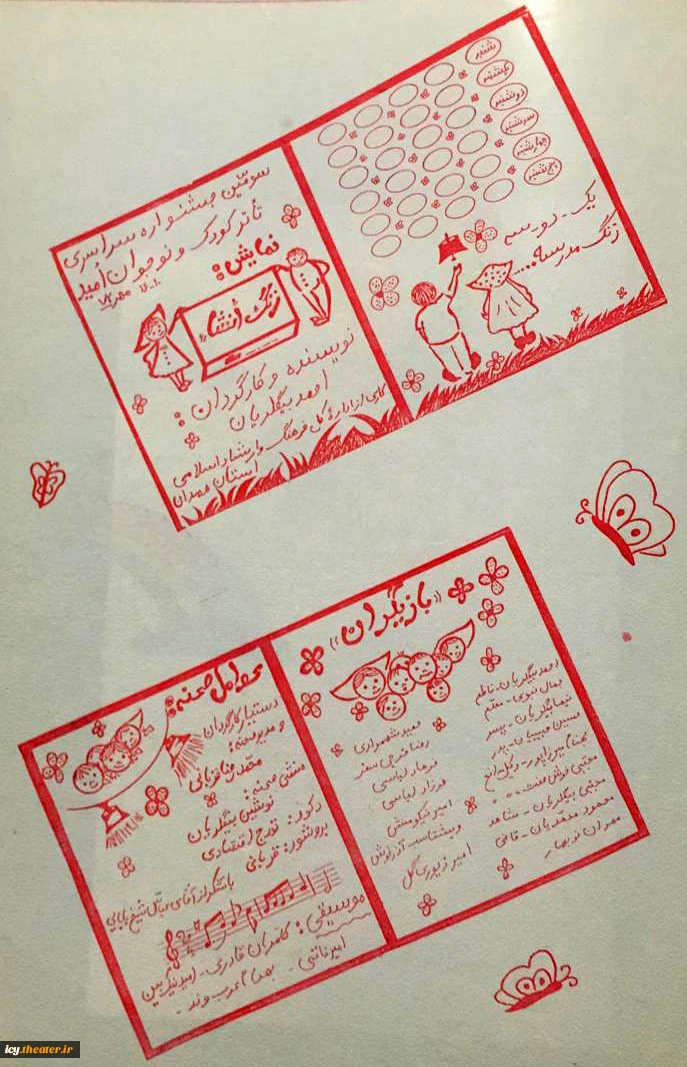 شنبه
یکشنبه
دوشنبه
سه شنبه
چهارشنبه
پنج شنبه
یک - دو - سه
زنگ مدرسه....
سومین جشنواره سراسری
تأتر کودک و نوجوان امید
نمایش:
زنگ انشاء
نویسنده و کارگردان:
احمد بیگلریان
کاری از اداره کل فرهنگ و ارشاد اسلامی
استان همدان
«بازیگران»
احمد بیگلریان - ناظم
جمال نبوی - معلم
نیما بیگلریان - پسر
حسین حبیبیان - پدر
مجتبی بیگلریان - شاهد
محمود محمدیان - قاضی
مهران نوبهار
حمید شهمرادی
رضا فرجی صفر
فرهاد لباسی
فرزاد لباسی
امیر نیکومنش
امیر زیوری گل
عوامل صحنه:
دستیار کارگردان
و مدیر صحنه:
محمدرضا قربانی
منشی صحنه:
نوشین بیگلریان
دکور: تورج اقتصادی
بروشور: قربانی
با تشکر از آقای شیخ بابایی
موسیقی: کامران قادری - امید نیک بین
امیر فاتحی
icy.theater.ir